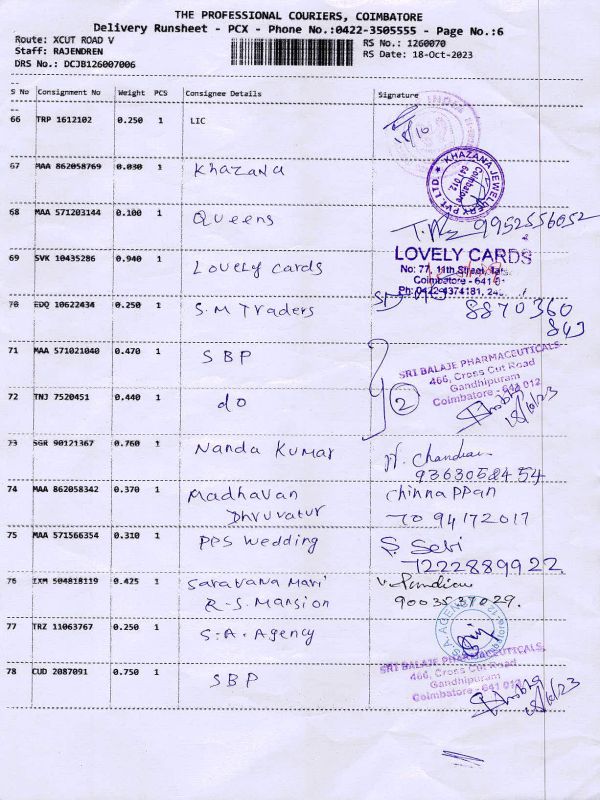 THE PROFESSIONAL COURIERS, COIMBATORE
Delivery Runsheet - PCX - Phone No.:0422-3505555 - Page No.:6
Route: XCUT ROAD V
RS No.: 1260070
Staff: RAJENDREN
RS Date: 18-Oct-2023
DRS No.: DCJB126007006
S No Consignment No Weight PCS Consignee Details Signature
66 TRP 1612102 0.250 1 LIC
18/10
67 MAA 862058769 0.030 1 Khazana
KHAZANA JEWELLERY PVT. LTD.
Coimbatore
641 012.
68 MAA 571203144 0.100 1 Queens 9952556052
69 SVK 10435286 0.940 1 Lovely cards
LOVELY CARDS
No: 77, 11th Street,
Coimbatore - 641 01
Ph: 0422-4374181,
70 EDQ 10622434 0.250 1 S.M Traders 8870360
843
71 MAA 571021040 0.470 1 SBP
SRI BALAJE PHARMACEUTICALS
466, Cross Cut Road
Gandhipuram
Coimbatore - 641 012
72 TNJ 7520451 0.440 1 do 2
73 SGR 90121367 0.760 1 Nanda Kumar
Chandran
9363058454
74 MAA 862058342 0.370 1 Madhavan Chinnappan
Dhruvatur 7094172017
75 MAA 571566354 0.310 1 PPS Wedding S. Selvi
7222889922.
76 IXM 504818119 0.425 1 Saravana Mari
R-S. Mansion 9003537029.
77 TRZ 11063767 0.250 1 S.A. Agency
S.A. AGENCY
78 CUD 2087091 0.750 1 SBP
SRI BALAJE PHARMACEUTICALS
466, Cross Cut Road
Gandhipuram
Coimbatore - 641 012